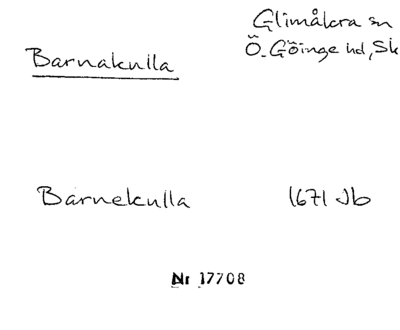 Glimåkra sn
Barnakulla
Ö. Göinge hd, Sk
Barnekulla 1671 Jb
Nr 17708